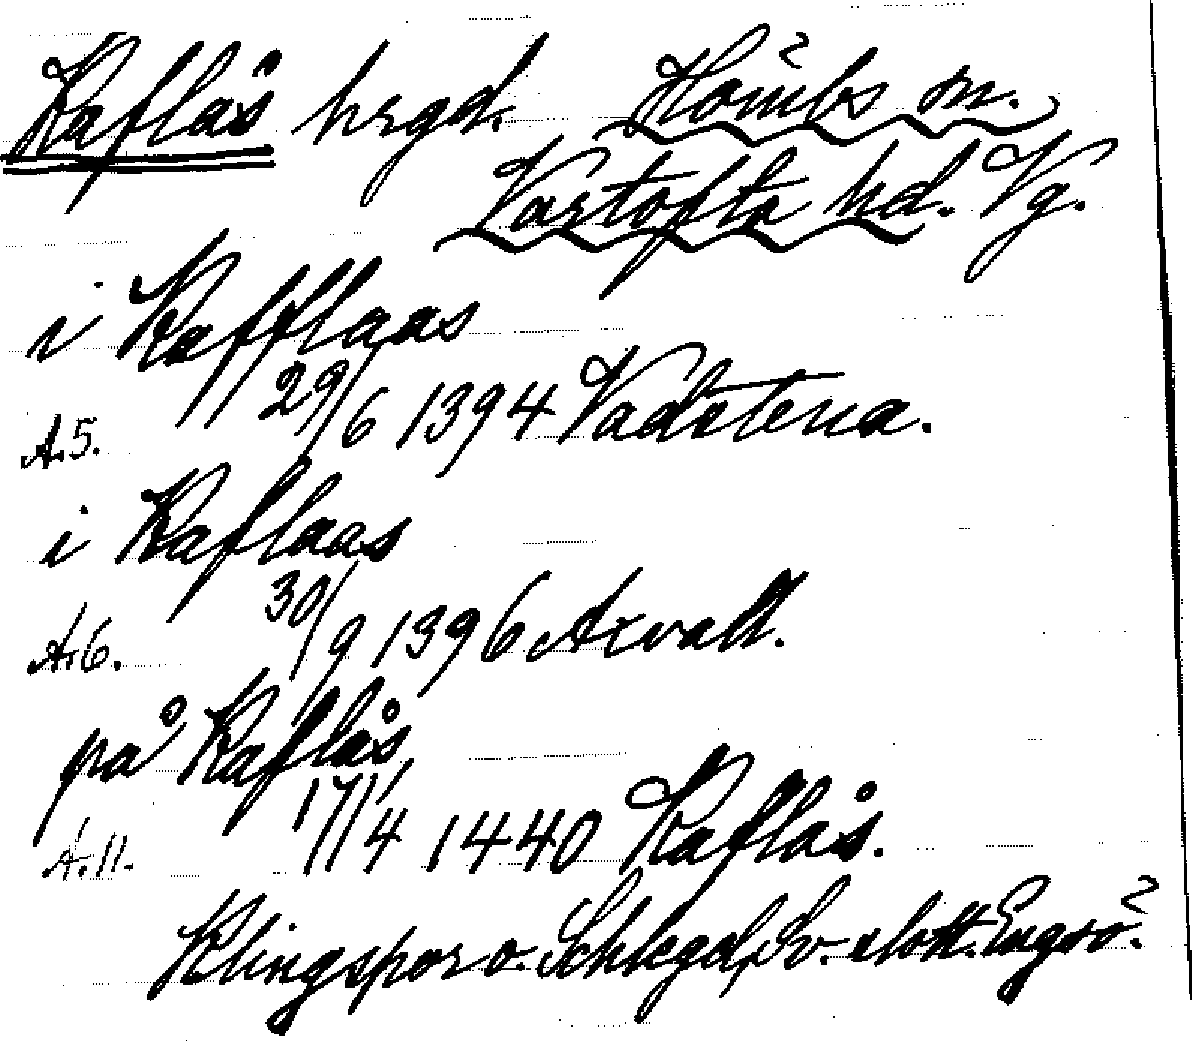 Kaflås hrgd. Hömbs sn.
Vartofta hd. Vg.
i Kafflaas
A.5. 29/6 1394 Vadstena.
i Kaflaas
A.6. 30/9 1396 Axvall.
på Kaflås
A.11. 17/4 1440 Kaflås.
Klingspor o. Schlegel, Sv. slott. Engsö.